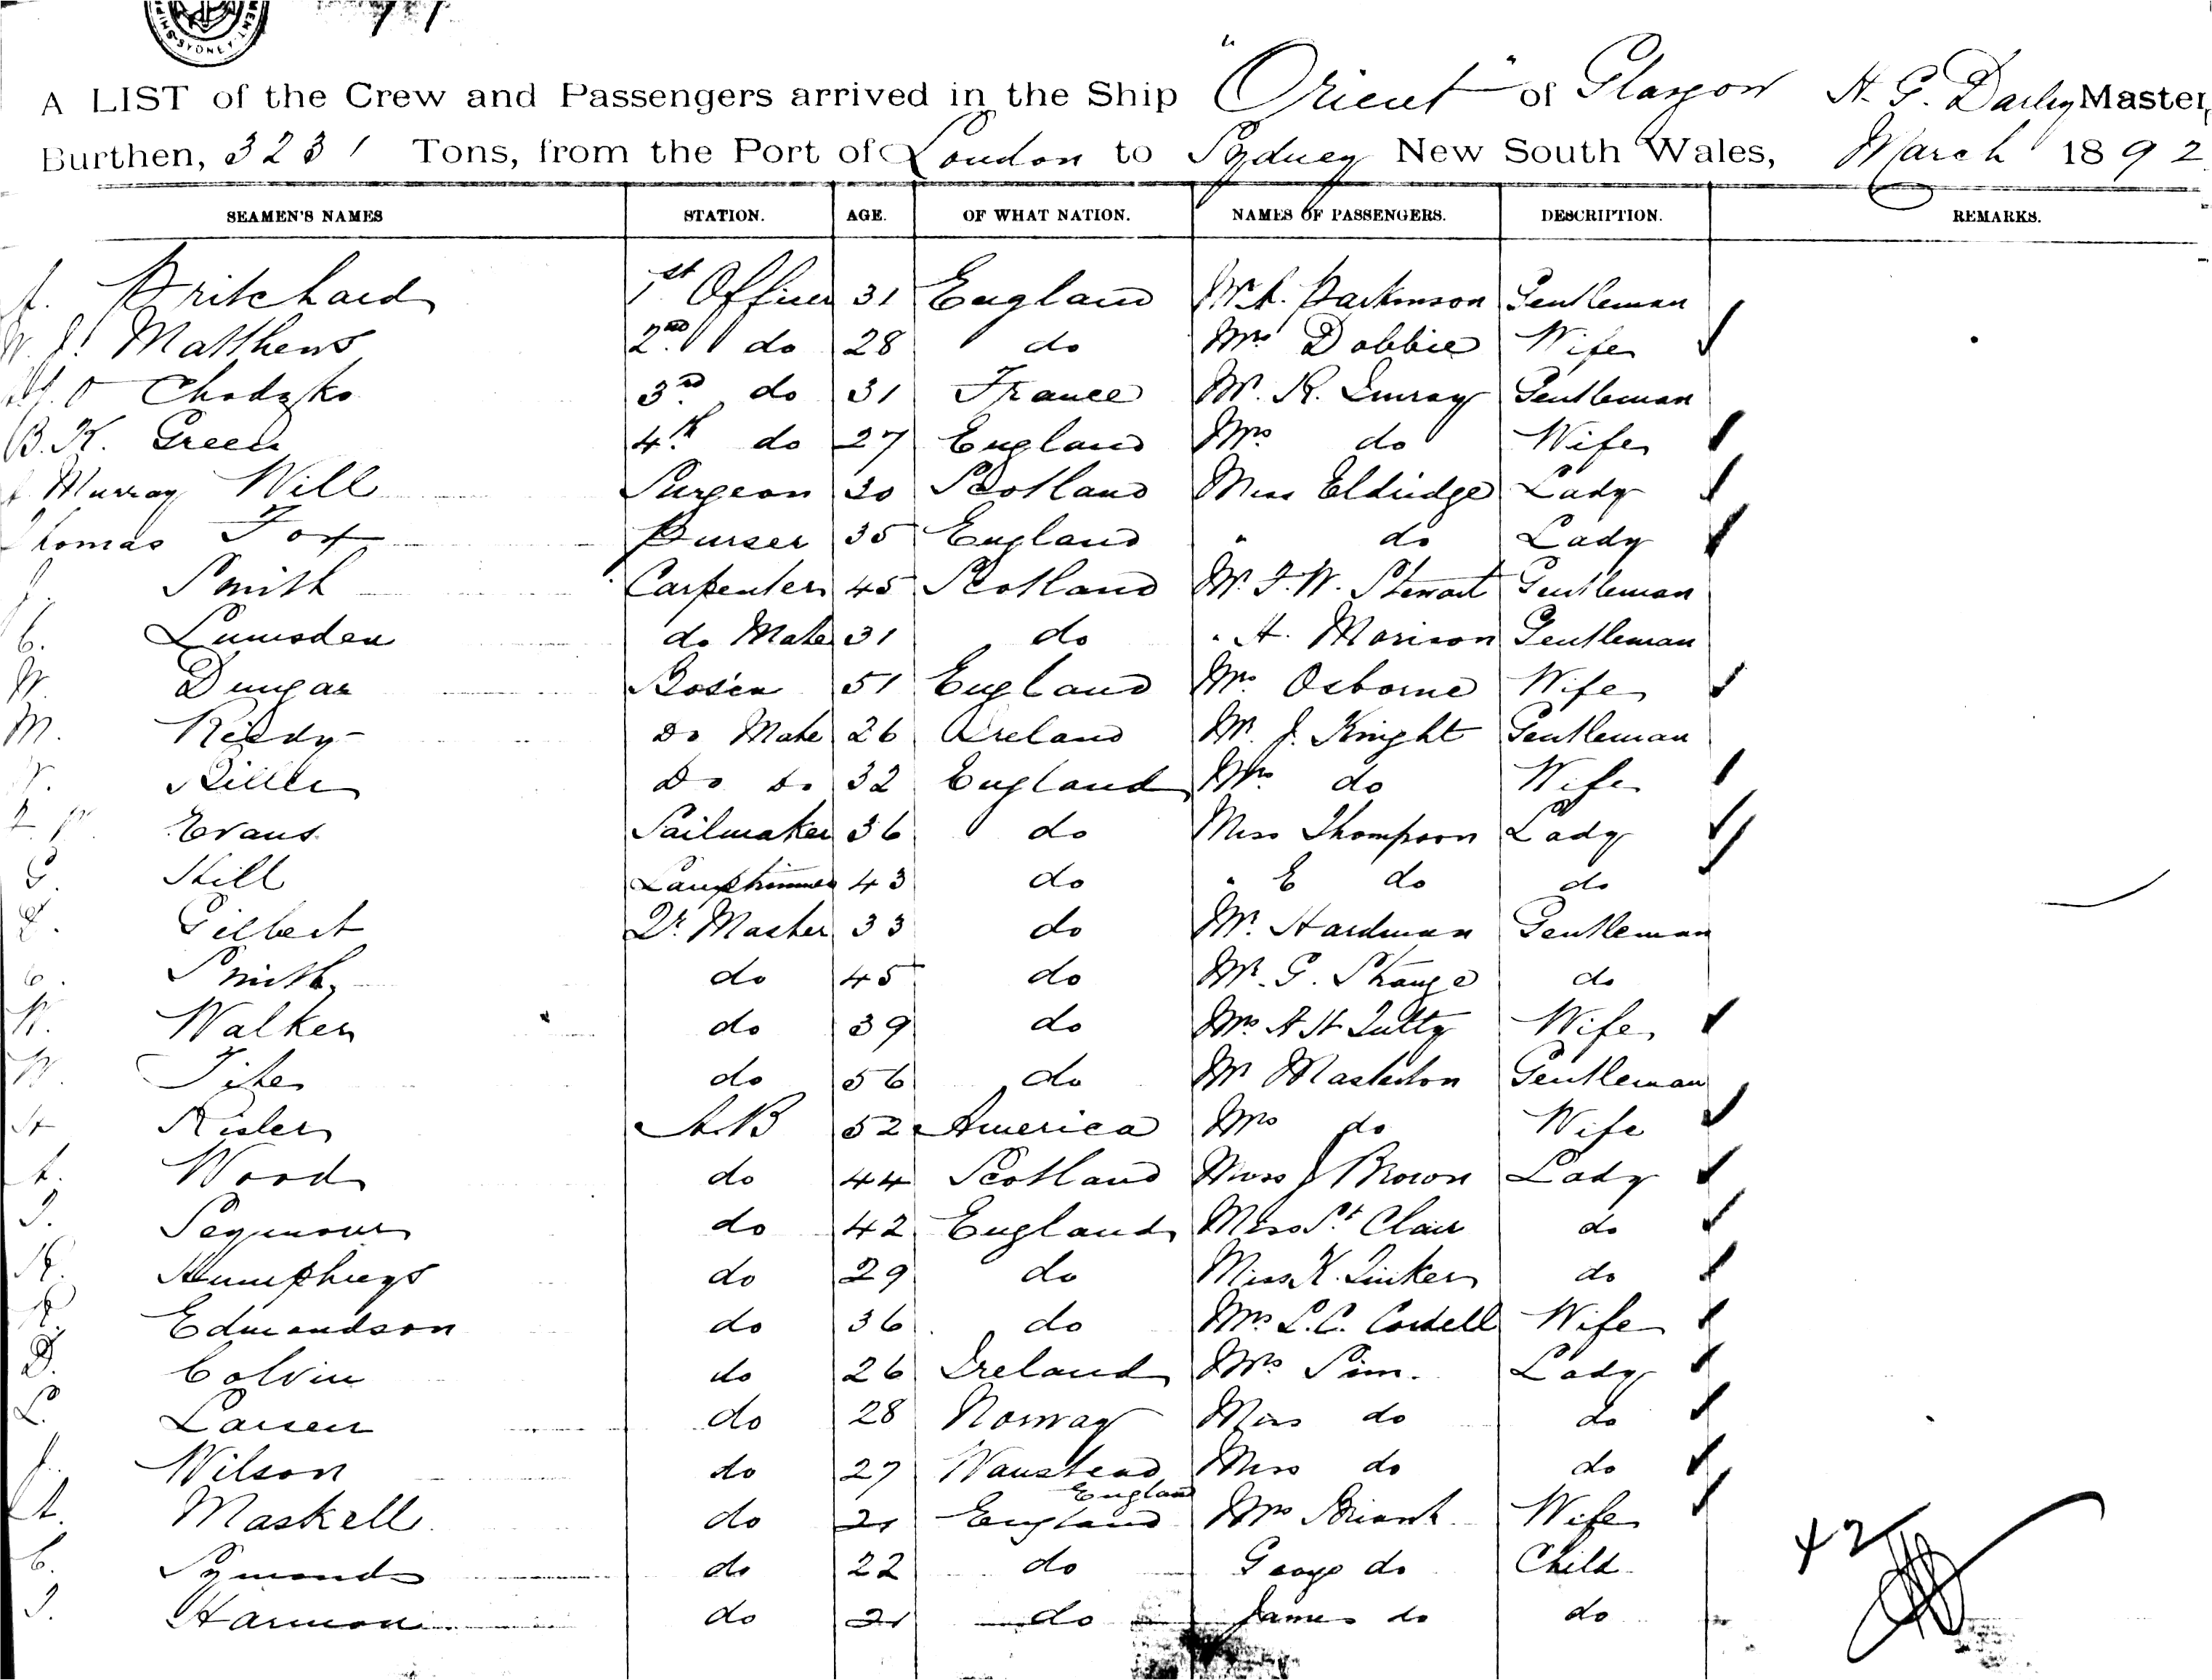 SYDNEY
A LIST of the Crew and Passengers arrived in the Ship "Orient" of Glasgow H. G. Darley Master,
Burthen, 3231 Tons, from the Port of London to Sydney New South Wales, March 1892
SEAMEN'S NAMES STATION. AGE. OF WHAT NATION. NAMES OF PASSENGERS. DESCRIPTION. REMARKS.
Pritchard 1st Officer 31 England Mr A. Parkinson Gentleman
W. J. Matthews 2nd do 28 do Mrs Dobbie Wife
Chodzko 3rd do 31 France Mr. R. Imray Gentleman
B. K. Green 4th do 27 England Mrs do Wife
Murray Will Surgeon 30 Scotland Miss Eldridge Lady
Thomas Fox Purser 35 England " do Lady
J. Smith Carpenter 45 Scotland Mr. F. W. Stewart Gentleman
C. Lumsden do Mate 31 do " A. Morison Gentleman
W. Dungar Bos'en 51 England Mrs Osborne Wife
M. Reidy Do Mate 26 Ireland Mr. J. Knight Gentleman
Do Do 32 England Mrs do Wife
Evans Sailmaker 36 do Miss Thompson Lady
G. Hill Lamptrimmer 43 do " E do do
Gilbert Qr. Master 33 do Mr. Hardman Gentleman
C. Smith do 45 do Mr. G. Strange do
W. Walker do 39 do Mrs A H Tutty Wife
W. do 56 do Mr Masterton Gentleman
H Risler A.B 52 America Mrs do Wife
A. Wood do 44 Scotland Miss J Brown Lady
J. Seymour do 42 England Miss St Clair do
Humphreys do 29 do Miss K. Tinker do
Edmondson do 36 do Mrs L. C. Cordell Wife
D. Colvin do 26 Ireland Mrs Sim. Lady
L. Larsen do 28 Norway Miss do do
J. Wilson do 27 Wanstead England Miss do do
A. Maskell do 21 England Mrs Briant Wife
C. Symonds do 22 do George do Child
J. Harmon do 21 do James do do
42